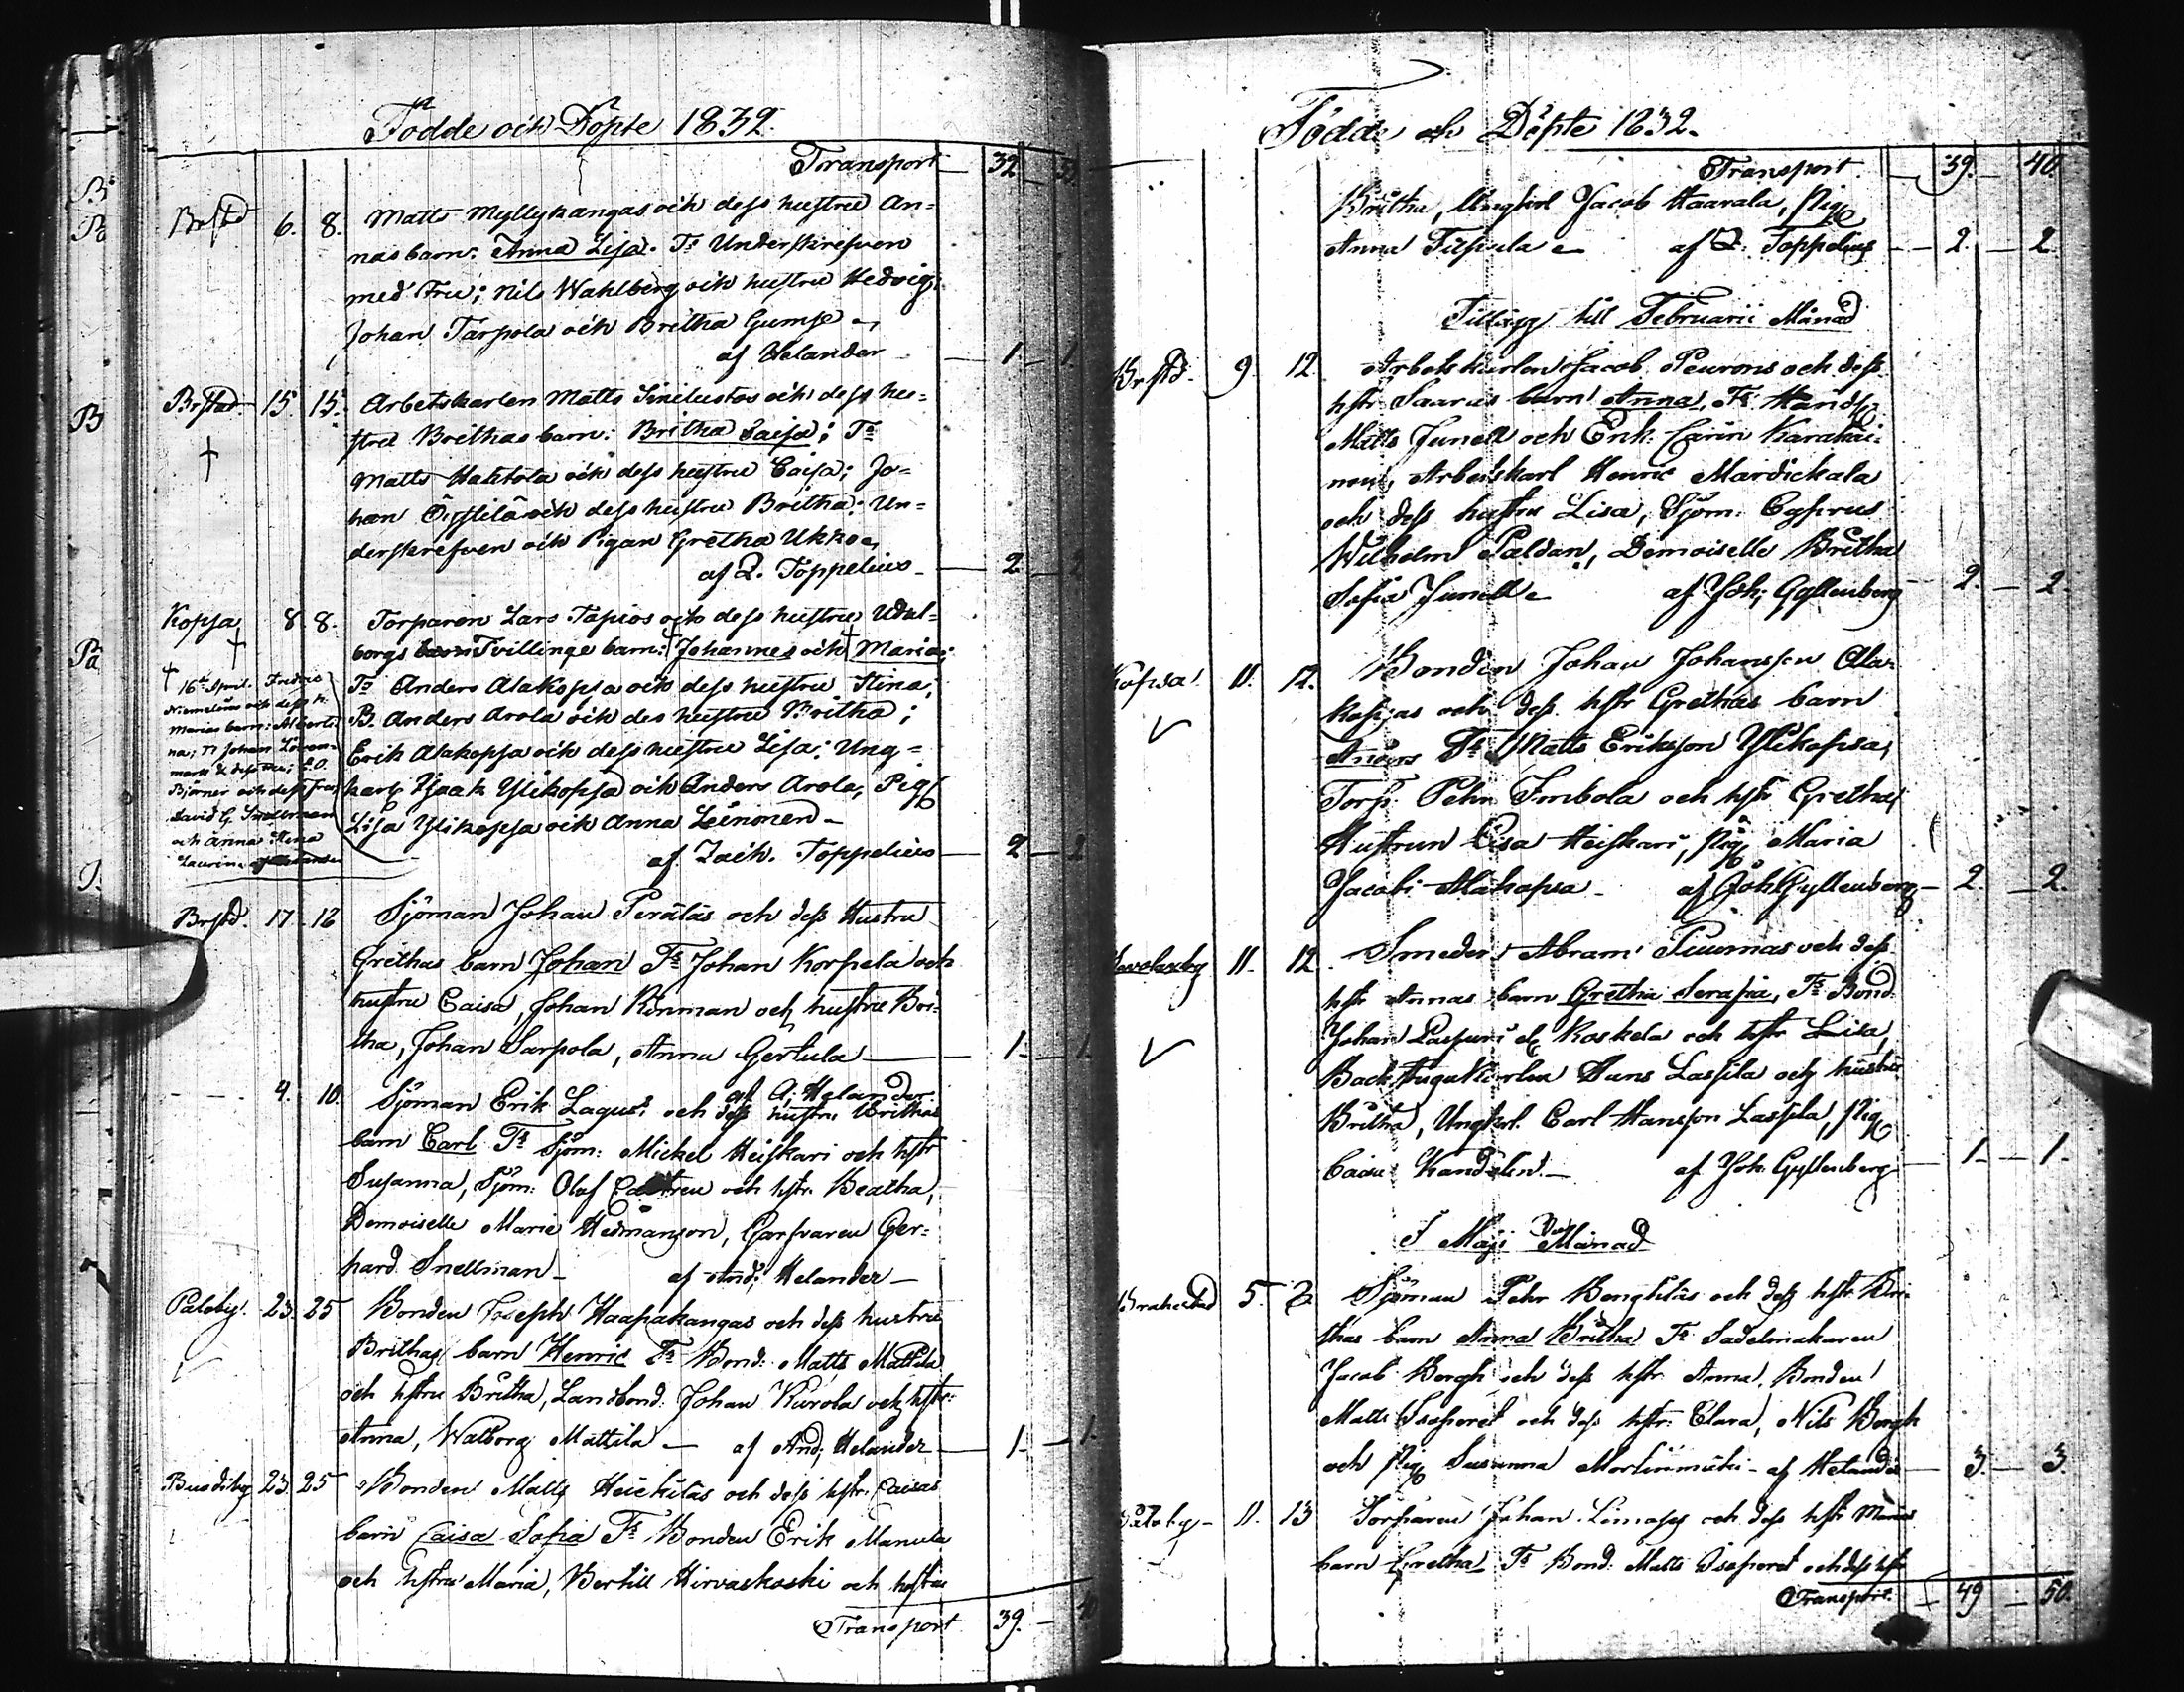 Födde och Döpte 1832.
Transport 32
Brstd 6. 8. Matts Myllykangas och dess hustru An=
nas barn: Anna Lisa. Ts Underskrefven
med Fru; Nils Wahlberg och hustru Hedvig;
Johan Tarpola och Britha Gumse
af Helander 1 1.
Brstad. 15 15. Arbetskarlen Matts Sinilustos och dess hu=
stru Brithas barn: Britha Caisa; Ts
Matts Hahtola och dess hustru Caisa; Jo=
han och dess hustru Britha; Un=
derskrefven och Pigan Gretha Ukko
af Z. Toppelius 2 2
Kopsa 8. 8. Torparen Lars Tapios och dess hustru Wal=
borgs barn Tvillinge barn: Johannes och Maria;
Ts Anders Alakopsa och dess hustru Stina;
B. Anders Arola och des hustru Britha;
Erik Alakopsa och dess hustru Lisa; Ung=
karl Isaak Ylikopsa och Anders Arola, Pig
Lisa Ylikopsa och Anna Leinonen
af Zach. Toppelius 2 2
16de April. Fredric
Niemelins och dess h.
Marias barn: Alberti
na; Ts Johan Löven=
mark & dess
Björner och dess Fru,
David G. Snellman
och Anna Stina
Laurin af Helander
Brstd. 17 18 Sjöman Johan Perälas och dess Hustru
Grethas barn Johan Ts Johan Korpela och
hustru Caisa, Johan Kinman och hustru Bri=
tha, Johan Sarpola, Anna Gertula 1. 1.
af A: Helander
4. 10. Sjöman Erik Lagus: och dess hustru Brithas
barn Carl Ts Sjöm: Mickel Heiskari och hstr
Susanna, Sjöm: Olof Castren och hstr. Beatha,
Demoiselle Marie Hedmanson, Garfvaren Ger=
hard Snellman af And: Helander
Paloby. 23. 25 Bonden Joseph Haapakangas och dess hustru
Brithas barn Henric Ts Bond: Matts Mattila
och hstru Britha, Landbond: Johan Kurola och hstr:
Anna, Walborg Mattila af And; Helander 1. 1.
23. 25 Bonden Matts Heickiläs och dess hstr: Caisas
barn Caisa Sofia Ts Bonden Erik Manula
och hstru Maria, Bertill Hirvaskoski och hustru
Transport 39.
Födde och Döpte 1832.
Transport. 39. 40
Britha, Ungkarl Jacob Haarala, Pig
Anna af Z. Toppelius 2. 2
Tillägg till Februarii Månad
Brstd. 9. 12. Arbetskarlen Jacob Peurons och dess
hstr Saaras barn Anna, Ts Handl:
Matts Junell och Enk: Carin Karahäi=
nen, Arbetskarl Henric Mardickala
och dess hustru Lisa, Sjöm: Cyprus
Wilhelm Paldan, Demoiselle Britha
Sofia Junell af Joh: Gyllenberg 2. 2.
Kopsa 11. 12. Bonden Johan Johansson Ala=
kopsas och dess hstr Grethas barn
Anders Ts Matts Eriksson Ylikopsa,
Torp: Pehr Imbola och hstr Gretha,
Hustrun Lisa Heiskari, Pig Maria
Jacobi Alakopsa af Joh: Gyllenberg 2. 2.
Savolaxby 11. 12. Smeden Abram Tuurnas och dess
hstr Annas barn Gretha Serafia, Ts Bond:
Johan Laspuri el Koskela och hstr Lisa,
Backstugukarlen Hans Lassila och hustru
Britha, Ungkrl. Carl Hansson Lassila, Pig
Caisa Kandelin af Joh: Gyllenberg 1. 1.
I Maji Månad
Brahestad 5. Sjöman Pehr Bengtiläs och dess hstr Bri=
thas barn Anna Britha Ts Sadelmakaren
Jacob Bergh och dess hstr Anna, Bonden
Matts och dess hstr: Clara, Nils Bergh
och Pig Susanna Mortinmäki af Helander 3. 3.
Paloby 11. 13 Torparen Johan och dess hstr Marias
barn Gretha Ts Bond: Matts och dess hst
Transport. 49 50.